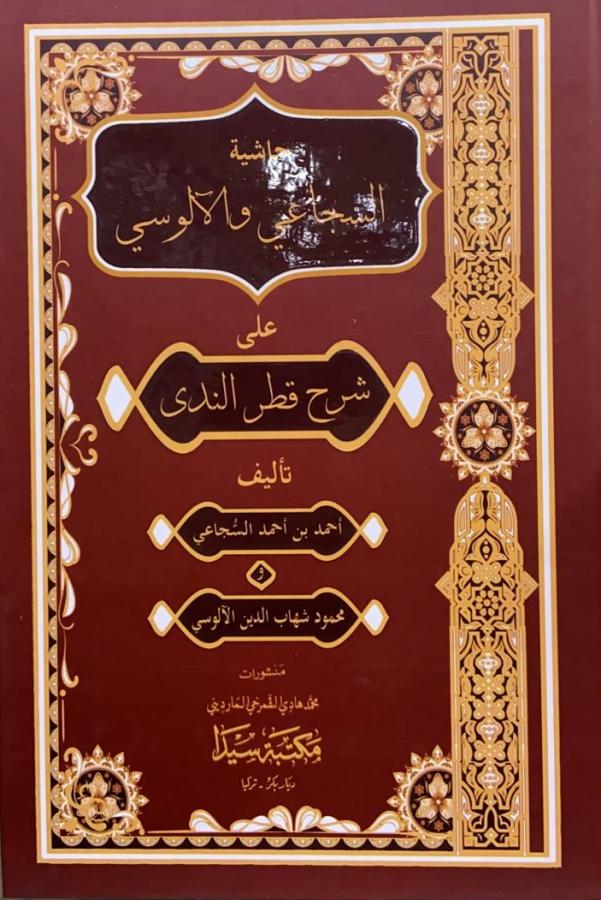 حاشية
السجاعي والآلوسي
على
شرح قطر الندى
تأليف
أحمد بن أحمد السُّجاعي
و
محمود شهاب الدين الآلوسي
منشورات
محمد هادي الشمرخي المارديني
مكتبة سيدا
ديار بكر - تركيا